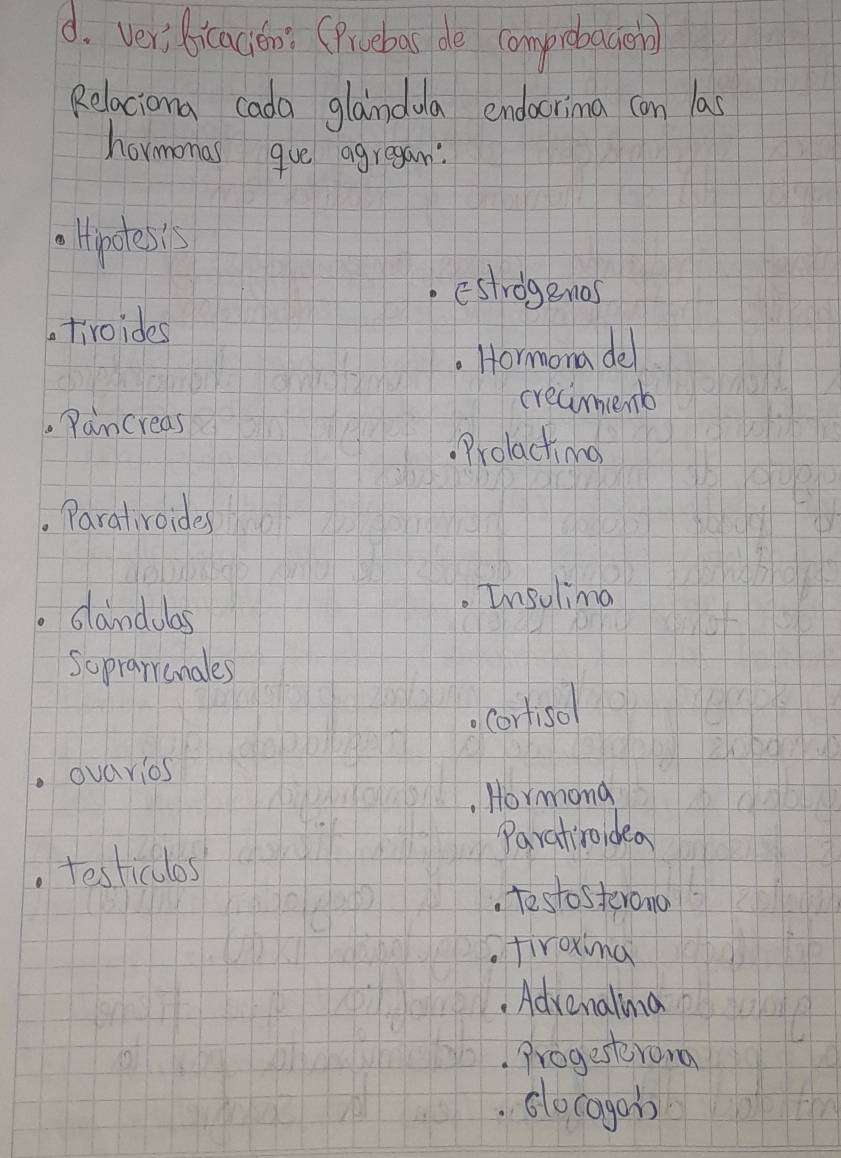 d. Verificación: (Pruebas de comprobación)
Relaciona cada glándula endocrina con las
hormonas que agregan:
• Hipotesis
• Estrógenos
• Tiroides
• Hormona del
crecimiento
• Páncreas
• Prolactina
• Paratiroides
• Insulina
• Glándulas
Suprarrenales
• Cortisol
• ovarios
• Hormona
Paratiroidea
• Testiculos
• Testosterona
• Tiroxina
• Adrenalina
• Progesterona
• Glucagón